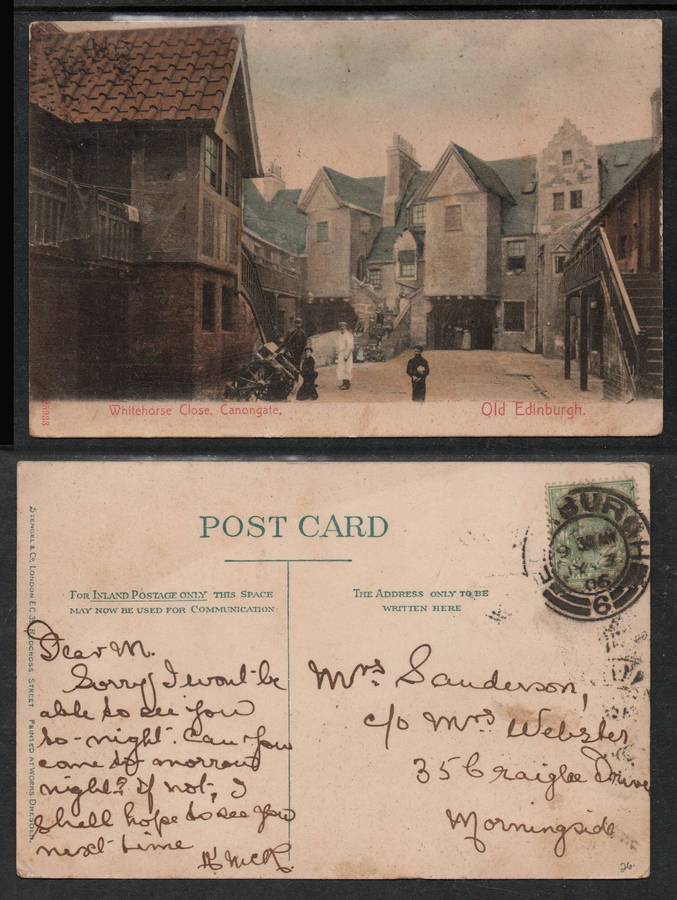 Whitehorse Close, Canongate,
Old Edinburgh.
POST CARD
FOR INLAND POSTAGE ONLY THIS SPACE
MAY NOW BE USED FOR COMMUNICATION
THE ADDRESS ONLY TO BE
WRITTEN HERE
STENGEL & Co, LONDON E.C. 39 REDCROSS STREET. PRINTED AT WORKS DRESDEN.
EDINBURGH
06
6
Dear M.
Sorry I wont be
able to see you
to-night. Can you
come to morrow
night? If not, I
shall hope to see you
next time
Mrs Sanderson,
c/o Mrs Webster
35 Craiglea Drive
Morningside